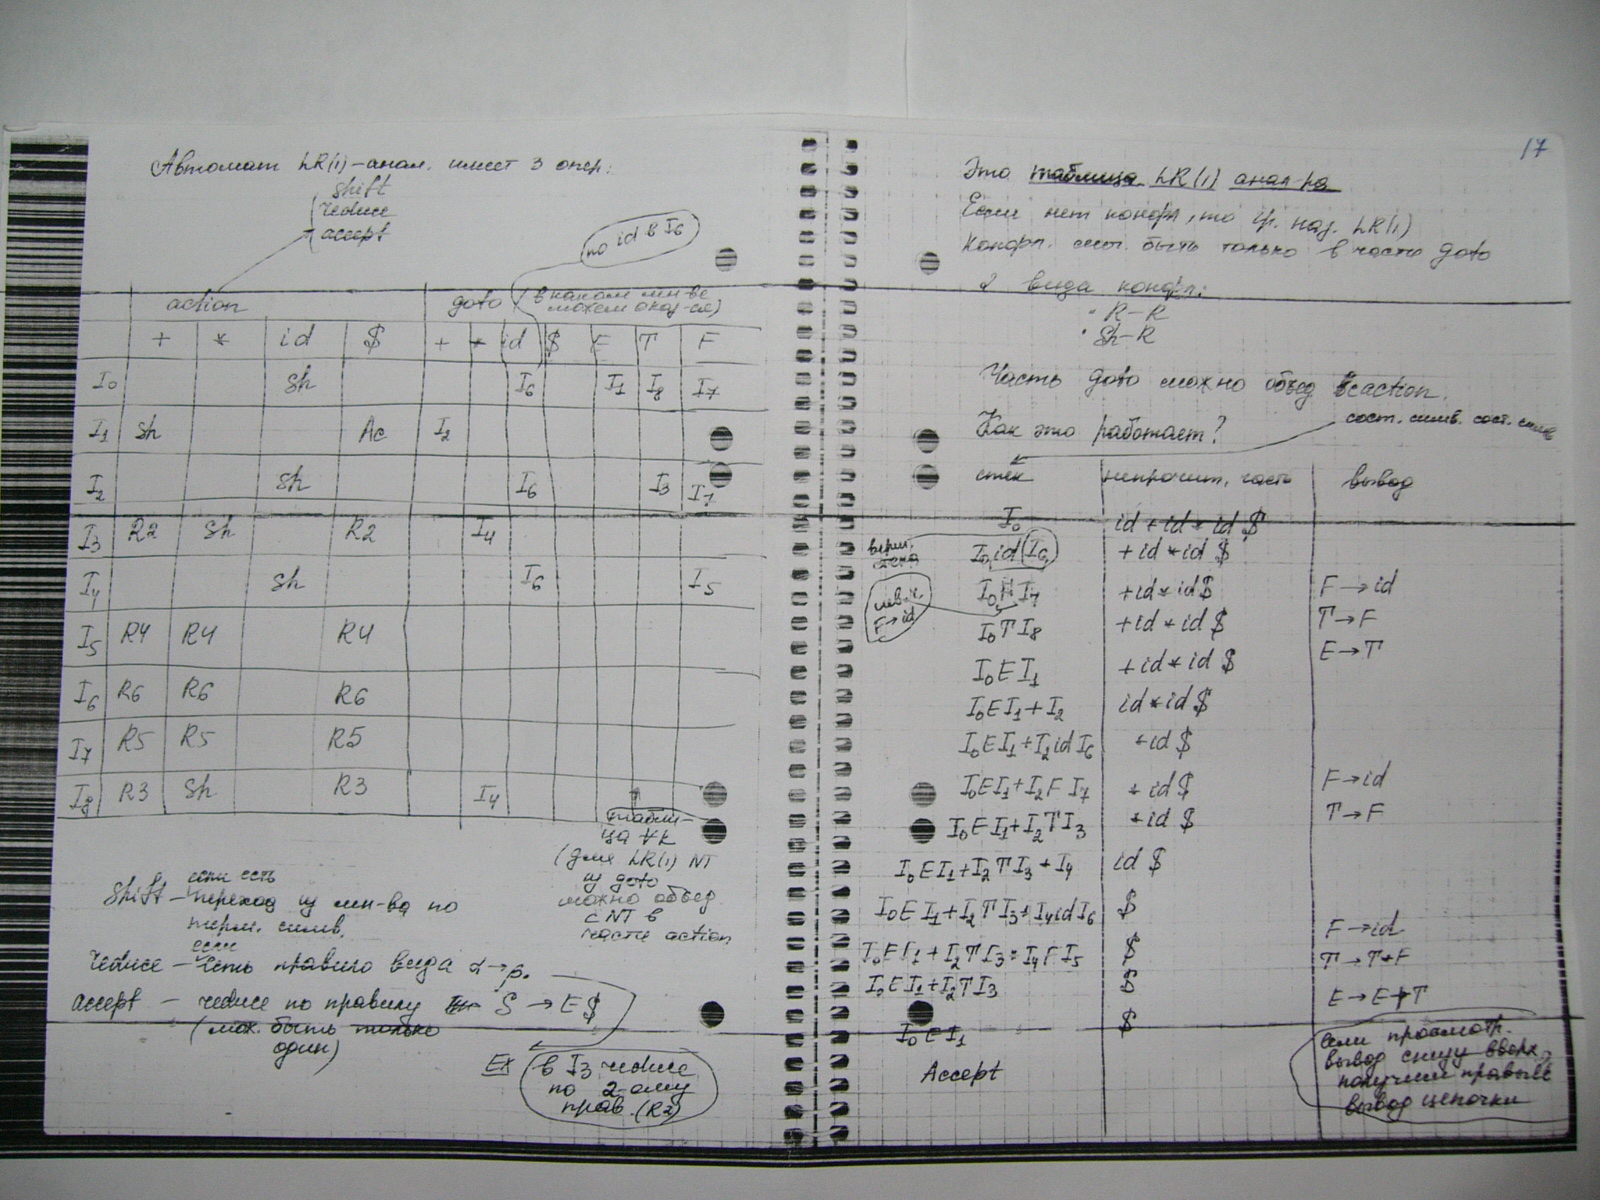 17
Автомат LR(1)-анал. имеет 3 опер:
shift
reduce
accept
по id в I6
action goto (в каком мн-ве
может оказ-ся)
+ * id $ + * id $ E T F
I0 Sh I6 I1 I8 I7
I1 Sh Ac I2
I2 Sh I6 I3 I7
I3 R2 Sh R2 I4
I4 Sh I6 I5
I5 R4 R4 R4
I6 R6 R6 R6
I7 R5 R5 R5
I8 R3 Sh R3 I4
табли-
ца
(для LR(1) NT
из goto
можно объед.
с NT в
части action
если есть
Shift - переход из мн-ва по
терм. симв.
если
reduce - есть правило вида α→β.
accept - reduce по правилу S → E$
(мож. быть только
один)
Ex в I3 reduce
по 2-ому
прав. (R2)
Это таблица LR(1) анал-ра
Если нет конфл, то гр. наз. LR(1)
Конфл. может быть только в части goto
2 вида конфл:
• R-R
• Sh-R
Часть goto можно объед с action.
Как это работает?
сост. симв. сост. симв
стек непрочит. часть вывод
I0 id + id * id $
верш.
стека
I0 id I6 + id * id $
F→id
I0 F I7 + id * id $ F→id
I0 T I8 + id * id $ T→F
I0 E I1 + id * id $ E→T
I0 E I1 + I2 id * id $
I0 E I1 + I2 id I6 * id $
I0 E I1 + I2 F I7 * id $ F→id
I0 E I1 + I2 T I3 * id $ T→F
I0 E I1 + I2 T I3 * I4 id $
I0 E I1 + I2 T I3 * I4 id I6 $
I0 E I1 + I2 T I3 * I4 F I5 $ F→id
I0 E I1 + I2 T I3 $ T→T*F
I0 E I1 $ E→E+T
Accept
Если просмотр.
вывод снизу вверх,
получим правый
вывод цепочки